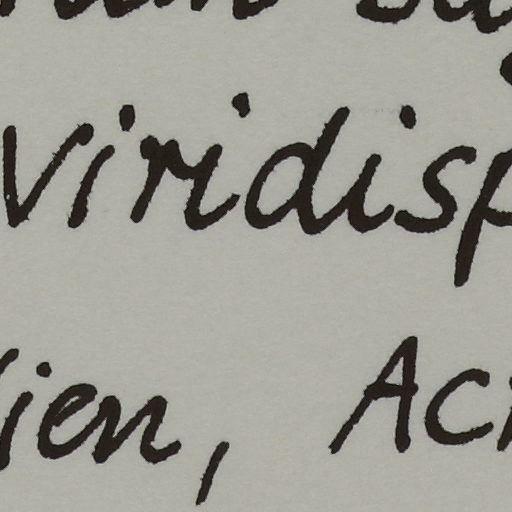 viridisp
ien, Ac